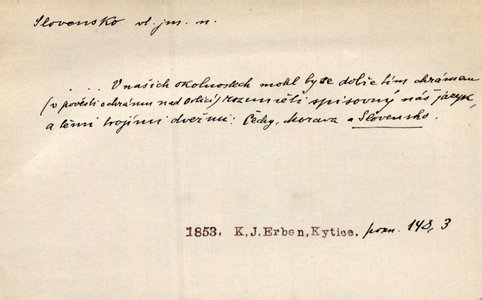 Slovensko vl. jm. n.
.... V našich okolnostech mohl by se dobře tím chrámem
(v pověsti o chrámu nad Orlicí) rozuměti spisovný náš jazyk,
a těmi trojími dveřmi: Čechy, Morava a Slovensko.
1853. K.J.Erben, Kytice. pozn. 148, 3